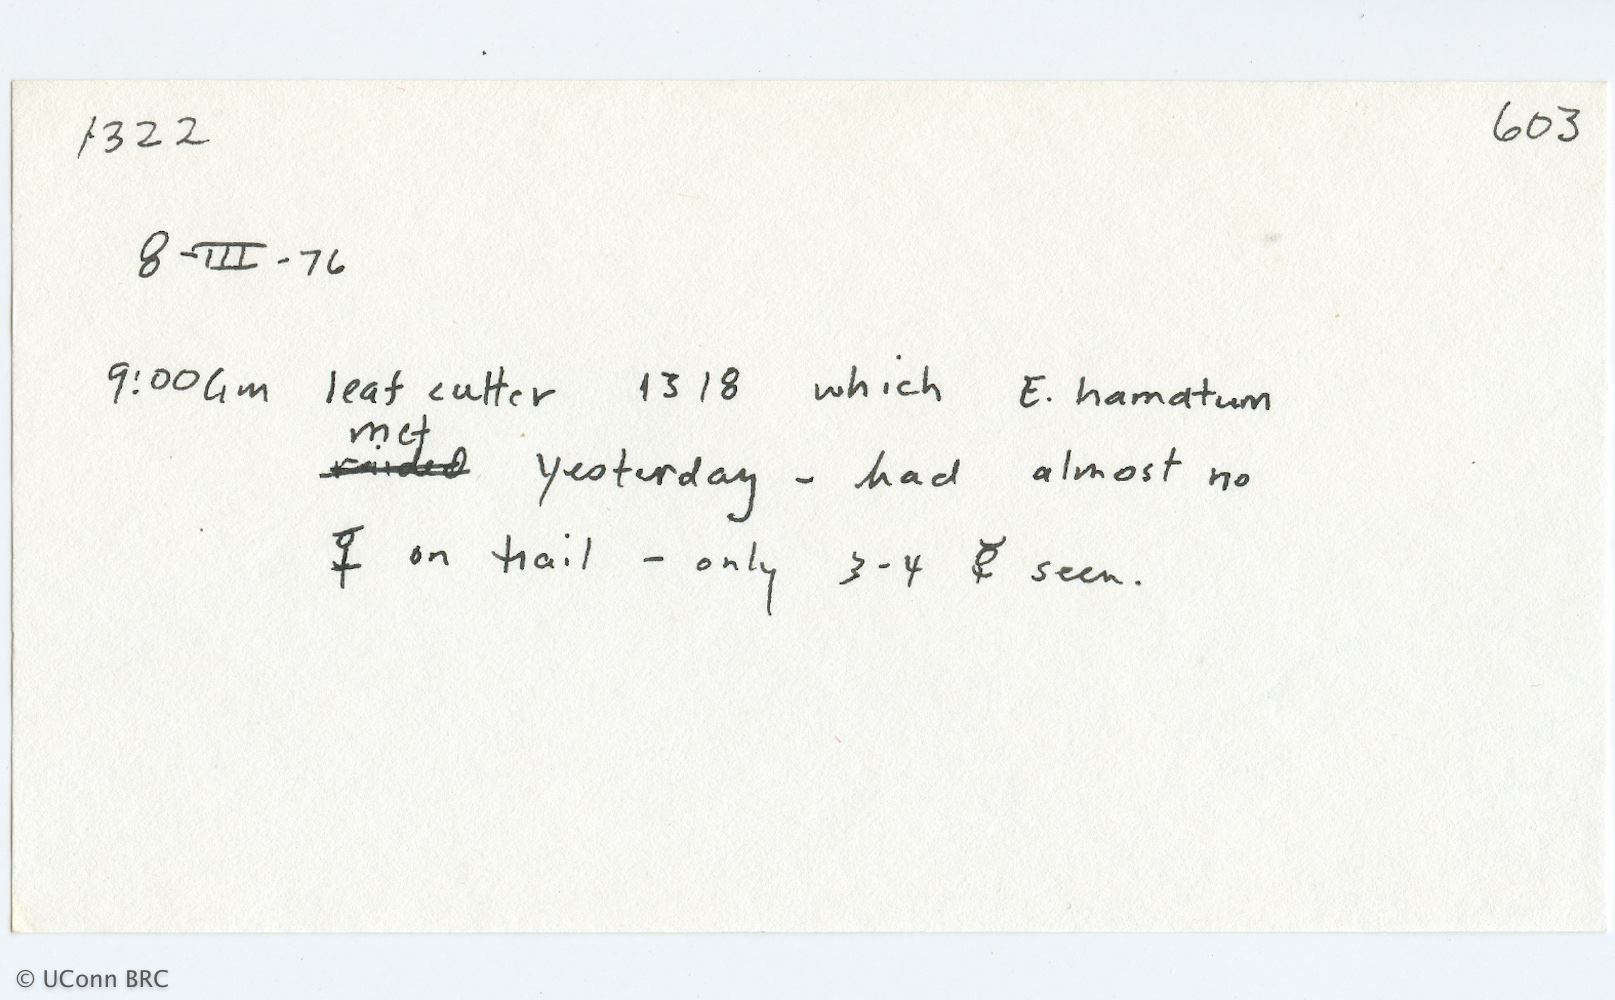 1322 603
8-III-76
9:00am leaf cutter 1318 which E. hamatum
met
raided yesterday - had almost no
☿ on trail - only 3-4 ☿ seen.
© UConn BRC